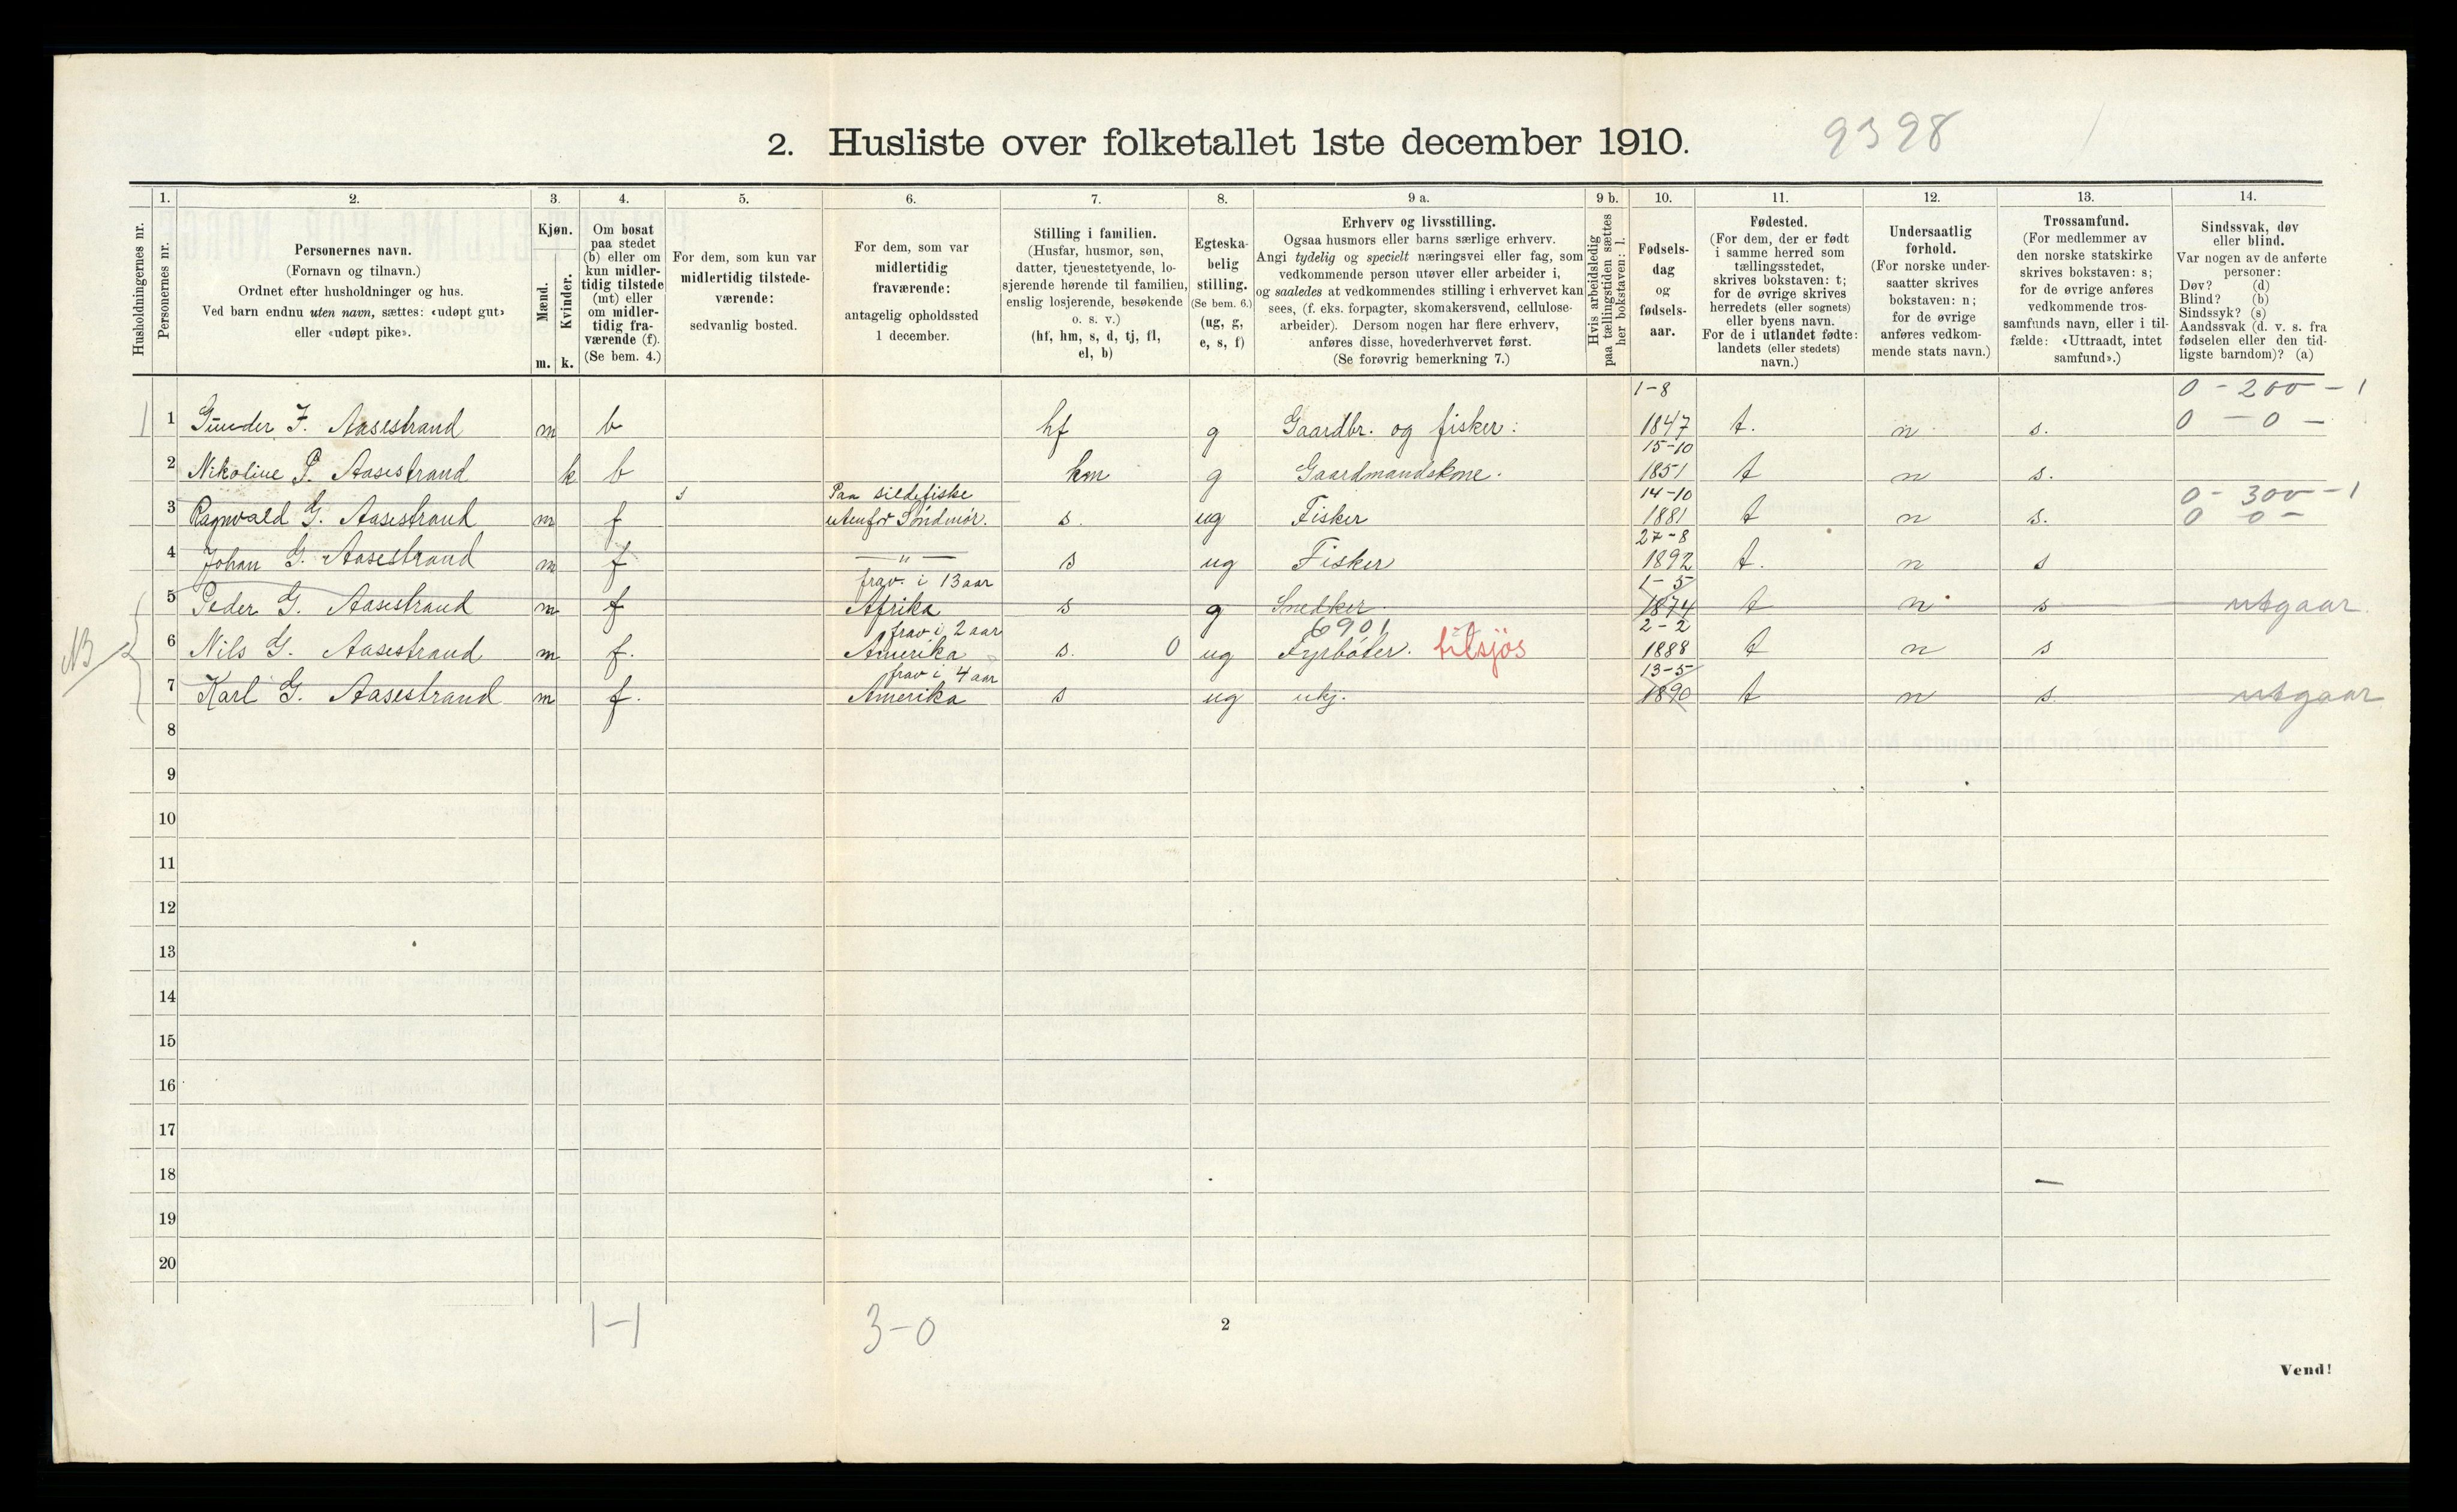 2. Husliste over folketallet 1ste december 1910.
9398
1. 2. 3. 4. 5. 6. 7. 8. 9 a. 9 b. 10. 11. 12. 13. 14.
Husholdningernes nr.
Personernes nr.
Personernes navn.
(Fornavn og tilnavn.)
Ordnet efter husholdninger og hus.
Ved barn endnu uten navn, sættes: «udøpt gut»
eller «udøpt pike».
Kjøn.
Mænd.
Kvinder.
m. k.
Om bosat
paa stedet
(b) eller om
kun midler-
tidig tilstede
(mt) eller
om midler-
tidig fra-
værende (f).
(Se bem. 4.)
For dem, som kun var
midlertidig tilstede-
værende:
sedvanlig bosted.
For dem, som var
midlertidig
fraværende:
antagelig opholdssted
1 december.
Stilling i familien.
(Husfar, husmor, søn,
datter, tjenestetyende, lo-
sjerende hørende til familien,
enslig losjerende, besøkende
o. s. v.)
(hf, hm, s, d, tj, fl,
el, b)
Egteska-
belig
stilling.
(Se bem. 6.)
(ug, g,
e, s, f)
Erhverv og livsstilling.
Ogsaa husmors eller barns særlige erhverv.
Angi tydelig og specielt næringsvei eller fag, som
vedkommende person utøver eller arbeider i,
og saaledes at vedkommendes stilling i erhvervet kan
sees, (f. eks. forpagter, skomakersvend, cellulose-
arbeider). Dersom nogen har flere erhverv,
anføres disse, hovederhvervet først.
(Se forøvrig bemerkning 7.)
Hvis arbeidsledig
paa tællingstiden sættes
her bokstaven: l.
Fødsels-
dag
og
fødsels-
aar.
Fødested.
(For dem, der er født
i samme herred som
tællingsstedet,
skrives bokstaven: t;
for de øvrige skrives
herredets (eller sognets)
eller byens navn.
For de i utlandet fødte:
landets (eller stedets)
navn.)
Undersaatlig
forhold.
(For norske under-
saatter skrives
bokstaven: n;
for de øvrige
anføres vedkom-
mende stats navn.)
Trossamfund.
(For medlemmer av
den norske statskirke
skrives bokstaven: s;
for de øvrige anføres
vedkommende tros-
samfunds navn, eller i til-
fælde: «Uttraadt, intet
samfund».)
Sindssvak, døv
eller blind.
Var nogen av de anførte
personer:
Døv? (d)
Blind? (b)
Sindssyk? (s)
Aandssvak (d. v. s. fra
fødselen eller den tid-
ligste barndom)? (a)
1-8 0 - 200 - 1
1 1 Gunder J. Aasestrand m b hf g Gaardbr. og fisker: 1847 t. n s. 0 - 0 -
15-10
2 Nikoline P. Aasestrand k b hm g Gaardmandskone. 1851 t n s.
s Paa sildefiske 14-10 0 - 300 - 1
3 Ragnvald G. Aasestrand m f utenfor Söndmör. s. ug Fisker 1881 t n s. 0 0 -
27-8
4 Johan G. Aasestrand m f — " — s ug Fisker 1892 t. n s
frav. i 13 aar 1-5
5 Peder G. Aasestrand m f Afrika s g Snedker 1874 t n s utgaar.
frav i 2 aar 6901 2-2
NB 6 Nils G. Aasestrand m f. Amerika s. 0 ug Fyrböter. tilsjös 1888 t n s
frav i 4 aar 13-5
7 Karl G. Aasestrand m f. Amerika s ug ukj. 1890 t n s. utgaar
8
9
10
11
12
13
14
15
16
17
18
19
20
1-1 3-0 2
Vend!